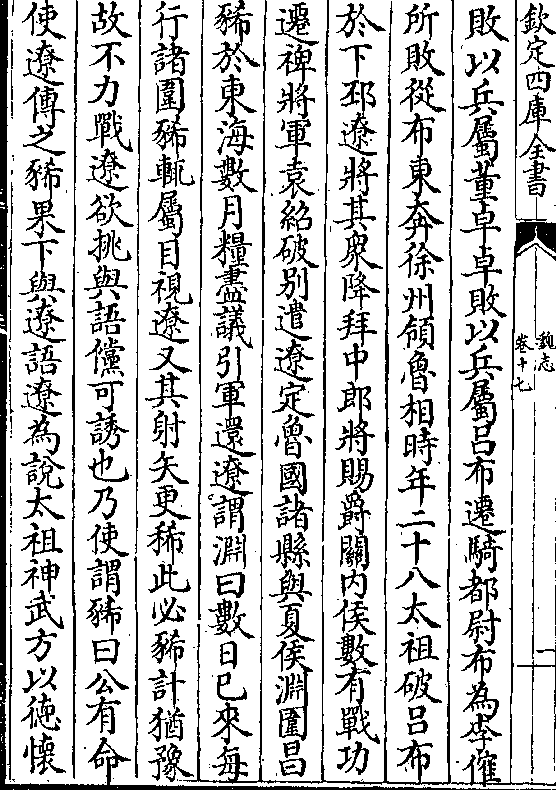 欽定四庫全書
魏志
卷十七
一
敗以兵屬董卓卓敗以兵屬呂布遷騎都尉布為李傕
所敗從布東奔徐州領魯相時年二十八太祖破呂布
於下邳遼將其衆降拜中郎將賜爵關内侯數有戰功
遷裨將軍袁紹破别遣遼定魯國諸縣與夏侯淵圍昌
豨於東海數月糧盡議引軍還遼謂淵曰數日已來每
行諸圍豨輒屬目視遼又其射矢更稀此必豨計猶豫
故不力戰遼欲挑與語儻可誘也乃使謂豨曰公有命
使遼傳之豨果下與遼語遼為說太祖神武方以徳懷